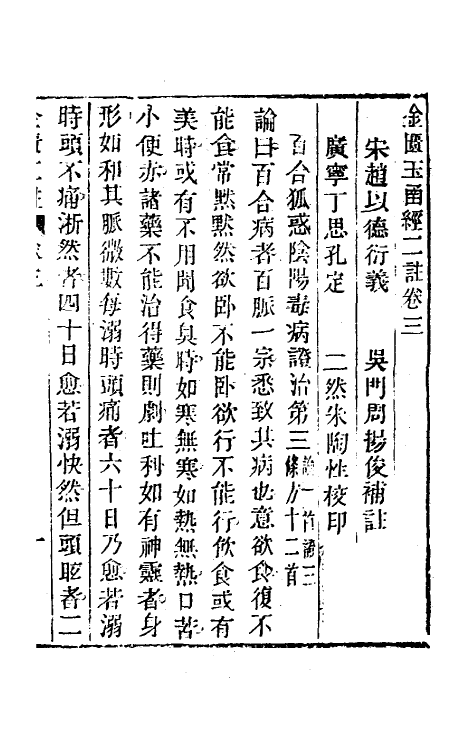 金匱玉函經二註卷三
宋趙以德衍義　吳門周揚俊補註
廣寧丁思孔定　二然朱陶性校印
百合狐惑陰陽毒病證治第三 論一首證三條方十二首
論曰百合病者百脈一宗悉致其病也意欲食復不
能食常默默然欲卧不能卧欲行不能行飲食或有
美時或有不用聞食臭時如寒無寒如熱無熱口苦
小便赤諸藥不能治得藥則劇吐利如有神靈者身
形如和其脈微數每溺時頭痛者六十日乃愈若溺
時頭不痛淅然者四十日愈若溺快然但頭眩者二
一